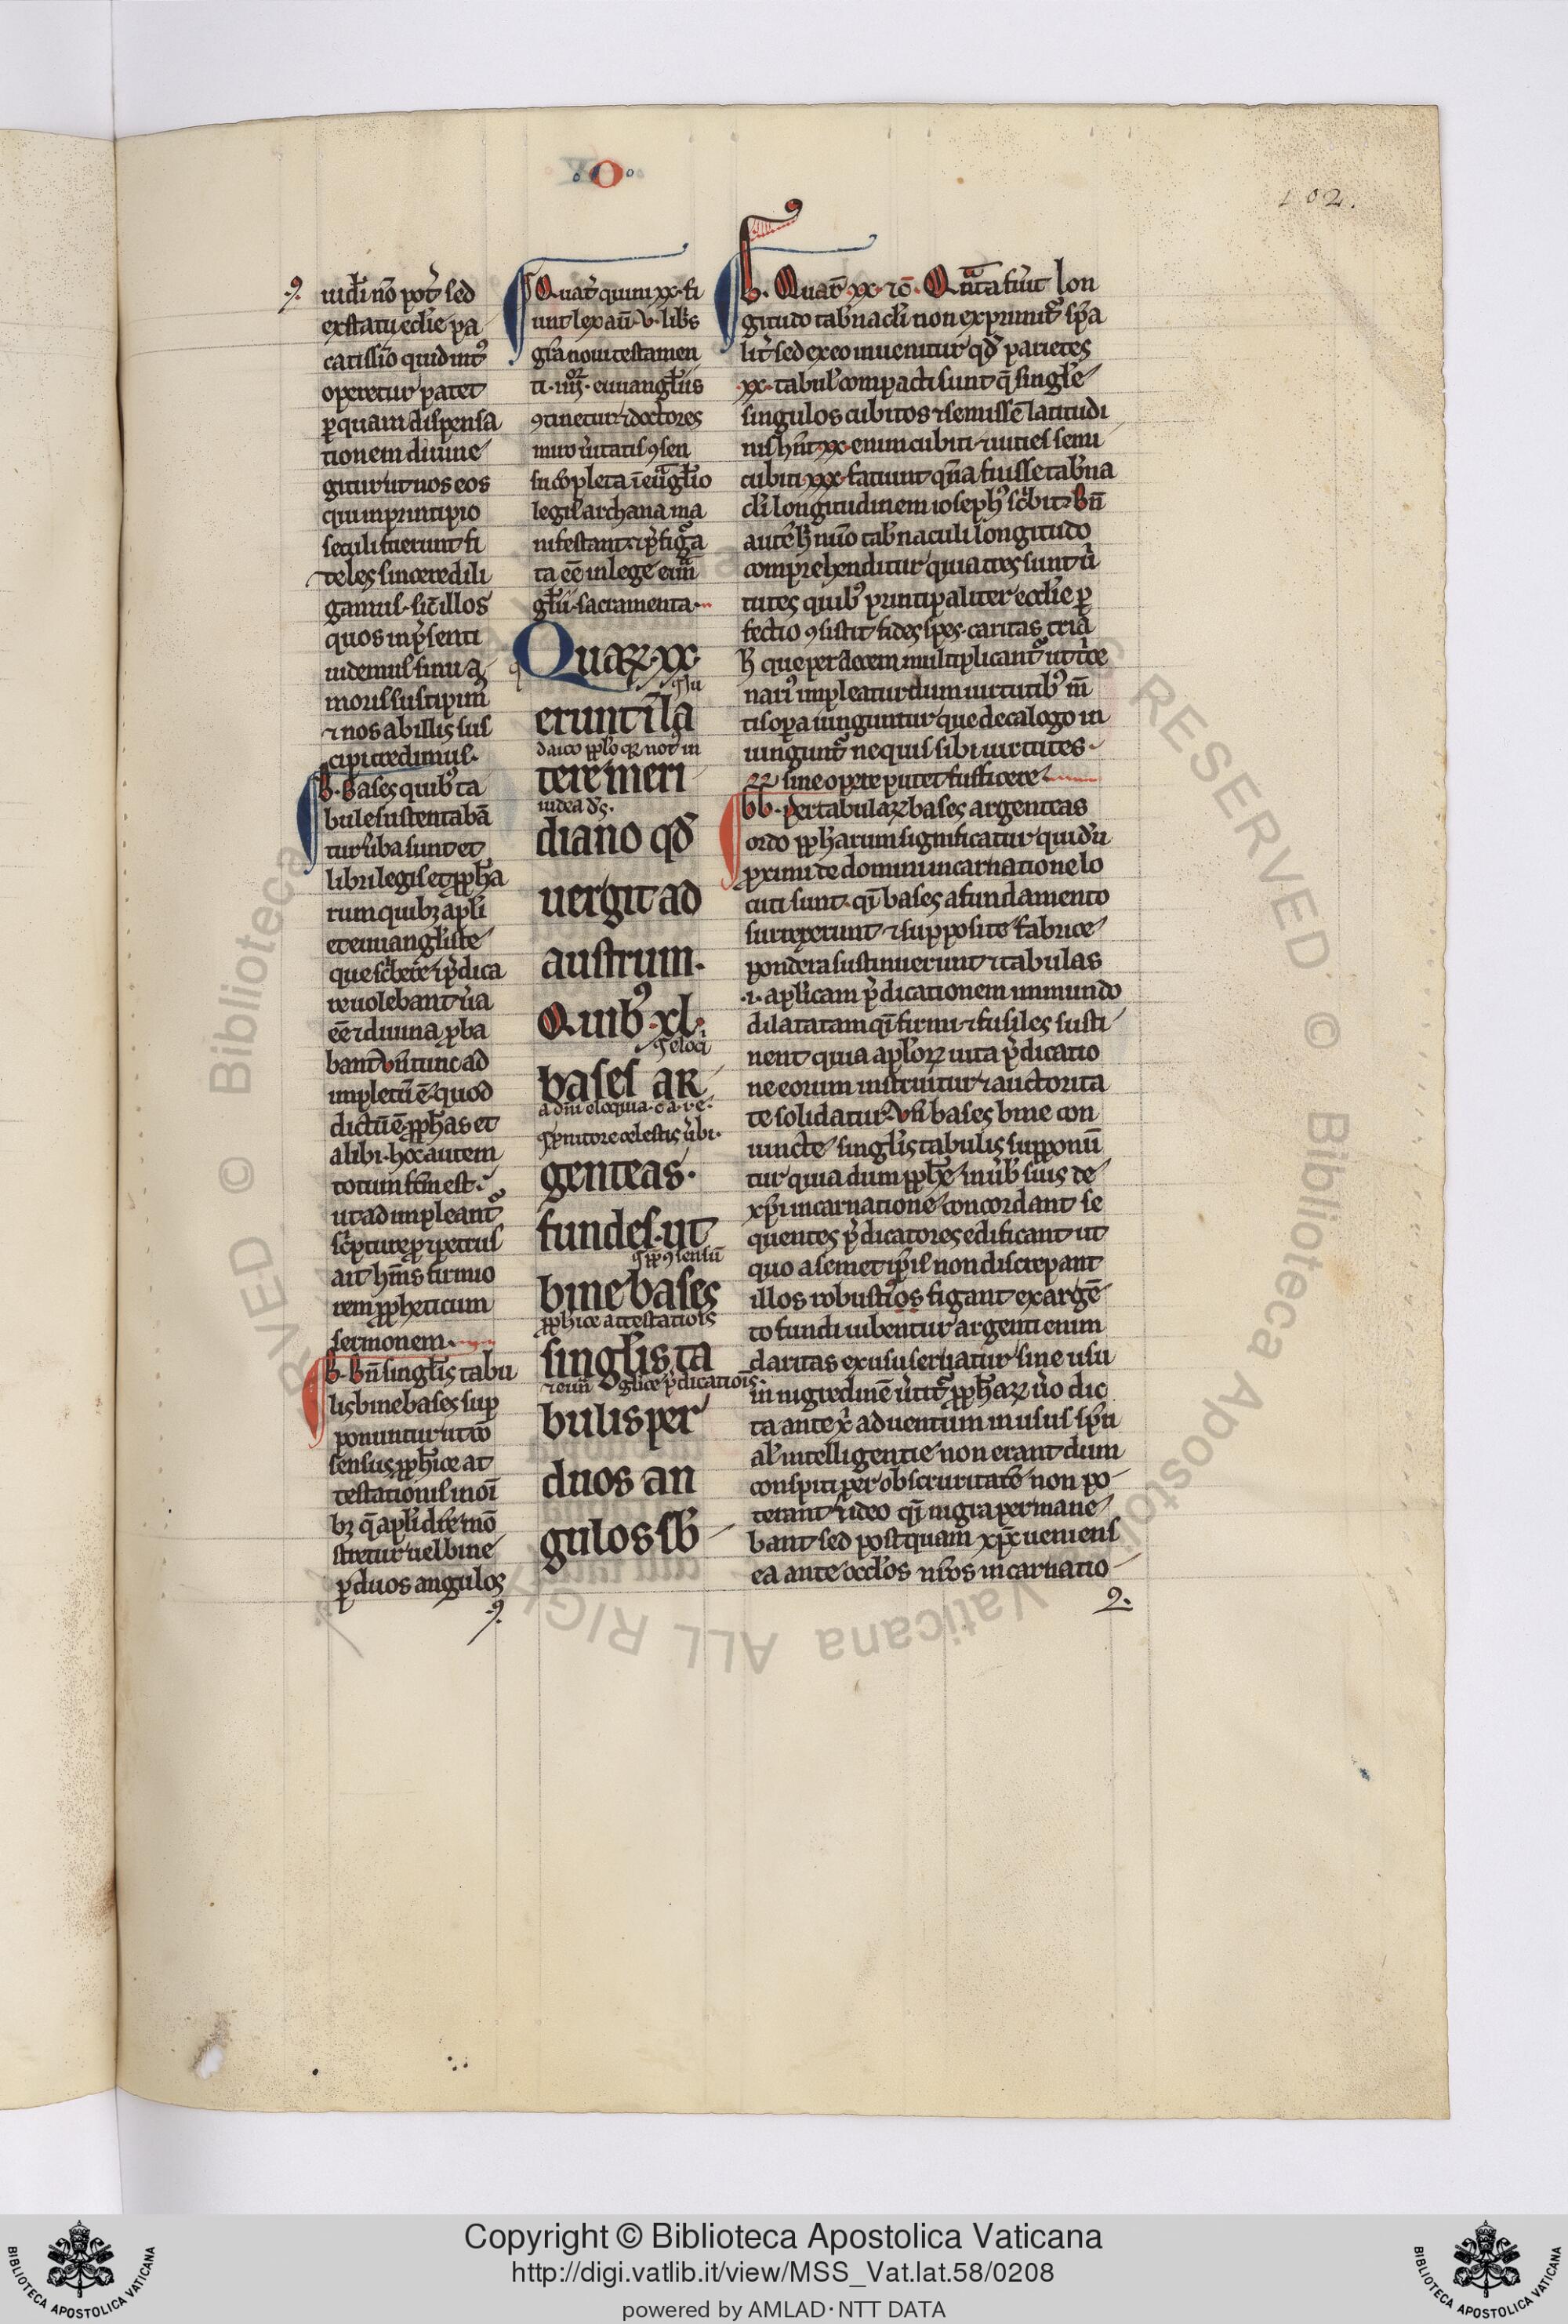 .O.
102.
uidẽi nõ pot̉ sed
ex statu ecclie pa
catissiõ quid int̉
operetur patet
ꝑ quam dispensa
tionem diuine
gitur ut nos eos
qui in principio
seculi fuerunt fi
deles sincere dili
gamus. sic̃ illos
quos in p̃senti
uidemus sinu a
moris suscipim̃
⁊ nos ab illis sus
cipi credimus.
B. Bases quib; ta
bule sustentabã
tur ũba sunt et
libri legis et ꝓpħa
rum quibꝫ apl̃i
et euuangl̃iste
que sc̃bere ⁊ p̃dica
re uolebant ũa
eẽ ⁊ diuina ꝓba
bant Vñ tunc ad
impletũ ẽ quod
dictũ ẽ ꝓpħas et
alibi. hoc autem
totum fc̃m est.
ut ad impleant᷑
sc̃pture ꝓ ⁊ petrus
ait hm̃s firmio
rem ꝓpheticum
sermonem.
B. Bñ singl̃is tabu
lis bine bases sup
ponuntur ut cõ
sensus ꝓpħice at
testationis in oĩ
bꝫ q̃ apl̃i dr̃e mõ
stretur uel bine
ꝑ duos anguloꝫ
Quat̉ quini xx. fi
unt lex aũ .v. lib̃s
gr̃a noui testamen
ti .iiij. euuangl̃iis
ꝯtinetur ⁊ doctores
miro ũitatis ꝯsen
su cõpleta ĩ eũagl̃io
legis archana ma
nifestant ⁊ p̃figa
ta eẽ in lege euua
gl̃ii sacramenta.
Quaꝝ .xx.
erunt ĩ la
tere meri
diano qđ
uergit ad
austrum.
Quib; .xl.
bases ar
genteas.
fundes. ut
bine bases
singl̃is ta
bulis per
duos an
gulos sb̃
B. Quaꝝ .xx. ⁊c̃. Qñta fũit lon
gitudo tab̃nacl̃i non exprimit᷑ sp̃a
lit̉ sed ex eo inuenitur qđ parietes
.xx. tabul̃ compacti sunt q̃ singl̃e
singulos cubitos ⁊ semissẽ latitudi
nis hñt xx. enim cubiti ⁊ uicies semi
cubiti .xxx. faciunt qñ̃a fuisse tab̃na
cl̃i longitudinem ioseph̉ sc̃bit ⁊ Bñ
autẽ ħ nũo tab̃naculi longitudo
comprehenditur quia tres sunt ũ
tutes quib; principaliter ecclie ꝑ
fectio ꝯsistit fides spes. caritas tria
ħ que per decem multiplicant᷑ ut t̃ce
nari᷒ impleatur dum uirtutib; m̃
tis opera iunguntur que decalogo in
iungunt᷑ ne quis sibi uirtutes.
sine opere putet sufficere.
bb. per tabulaꝝ bases argenteas
ordo ꝓpħarum significatur qui dũ
ꝓximi de domini incarnatione lo
cuti sunt. q̃ bases a fundamento
surrexerunt ⁊ supposite fabrice
pondera sustinuerunt ⁊ tabulas
.i. apl̃icam p̃dicationem in mundo
dilatatam q̃ firmi ⁊ fusiles susti
nent quia apl̃oꝝ uita p̃dicatio
ne eorum instruitur ⁊ auctorita
te solidatur. Vñ bases bine con
iuncte singl̃is tabulis supponũ
tur quia dum ꝓpħe in ũb̃ suis de
xp̃i incarnatione concordant se
quentes p̃dicatores edificant ut
quo a semet ip̃is non discrepant
illos robustios figant ex argẽ
to fundi iubentur argenti enim
claritas ex usu seruatur sine usu
in nigredinẽ ũtit᷑ ꝓpħaꝝ ũo dic
ta ante x̃ aduentum in usus sp̃u
al̃ intelligentie non erant dum
conspici per obscuritatẽ non po
terant ⁊ ideo q̃ nigra permane
bant sed postquam xp̃c ueniens
ea ante occl̃os nr̃os incarnatio
Copyright © Biblioteca Apostolica Vaticana
http://digi.vatlib.it/view/MSS_Vat.lat.58/0208
powered by AMLAD·NTT DATA
BIBLIOTECA APOSTOLICA VATICANA
BIBLIOTECA APOSTOLICA VATICANA